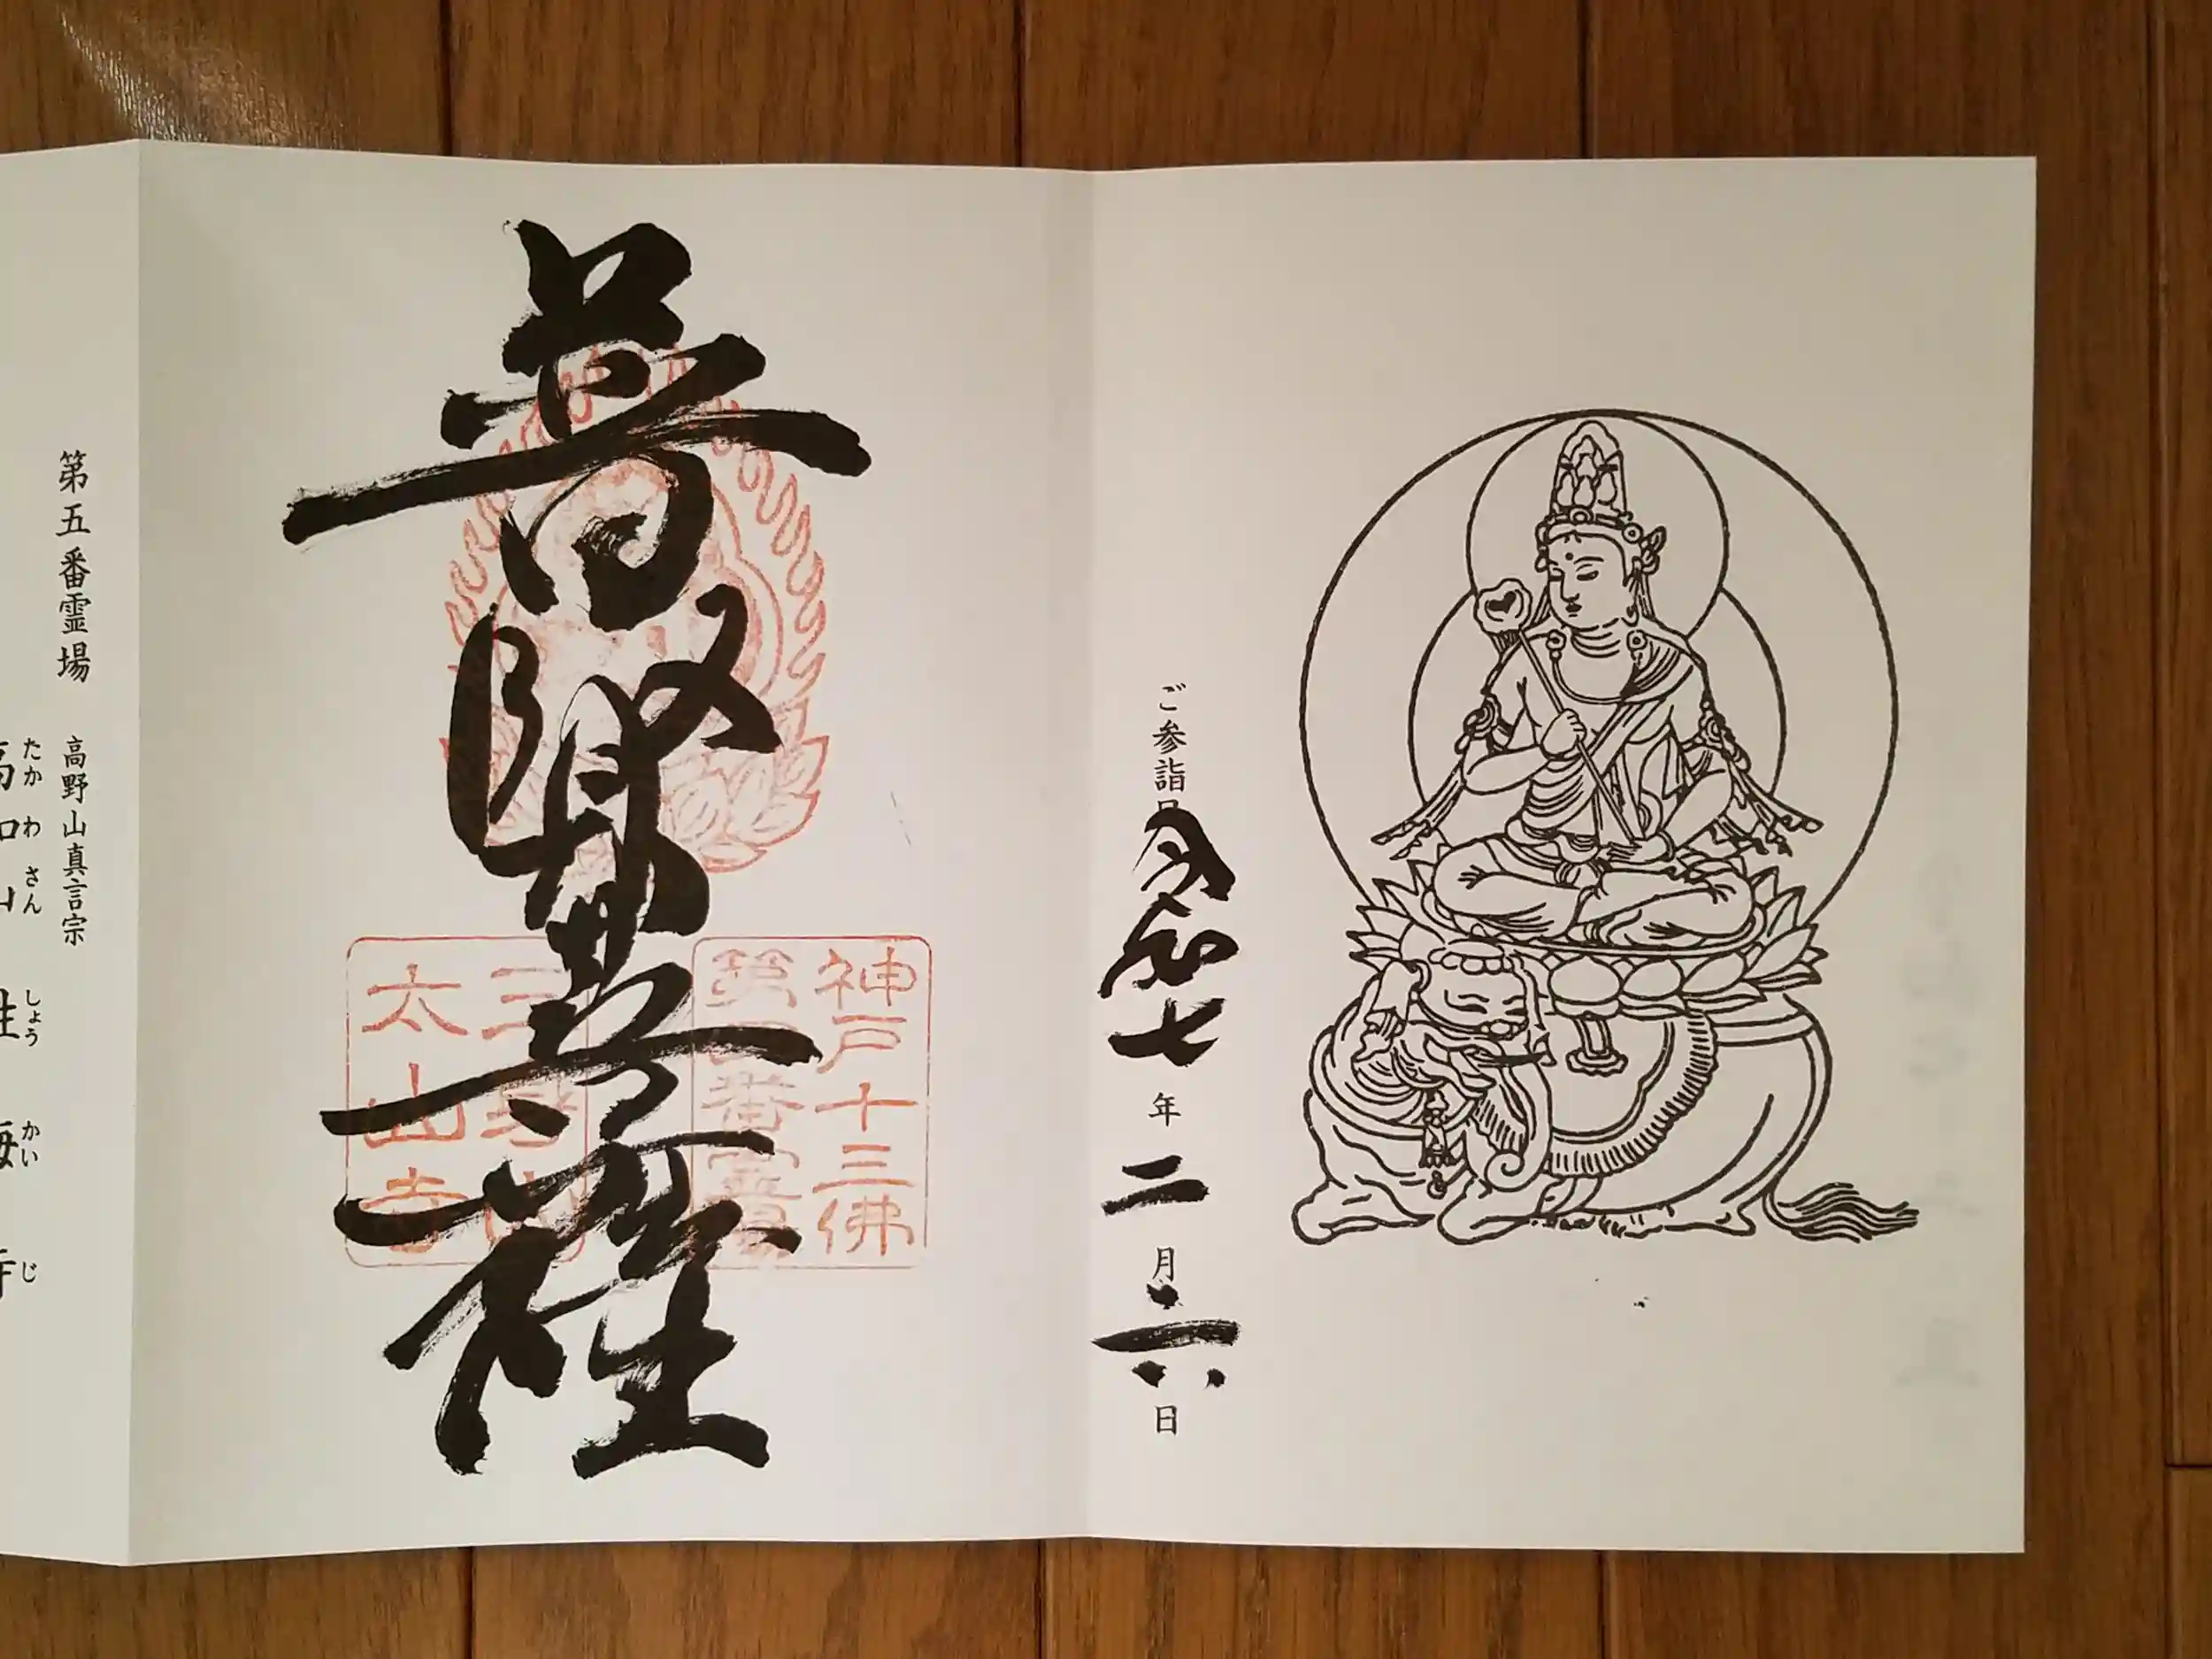 ご参詣日
令和七年二月六日
普賢菩薩
神戸十三佛
第 番霊
三身山
太山寺
第五番霊場
高野山真言宗
たかわさん しょうかいじ